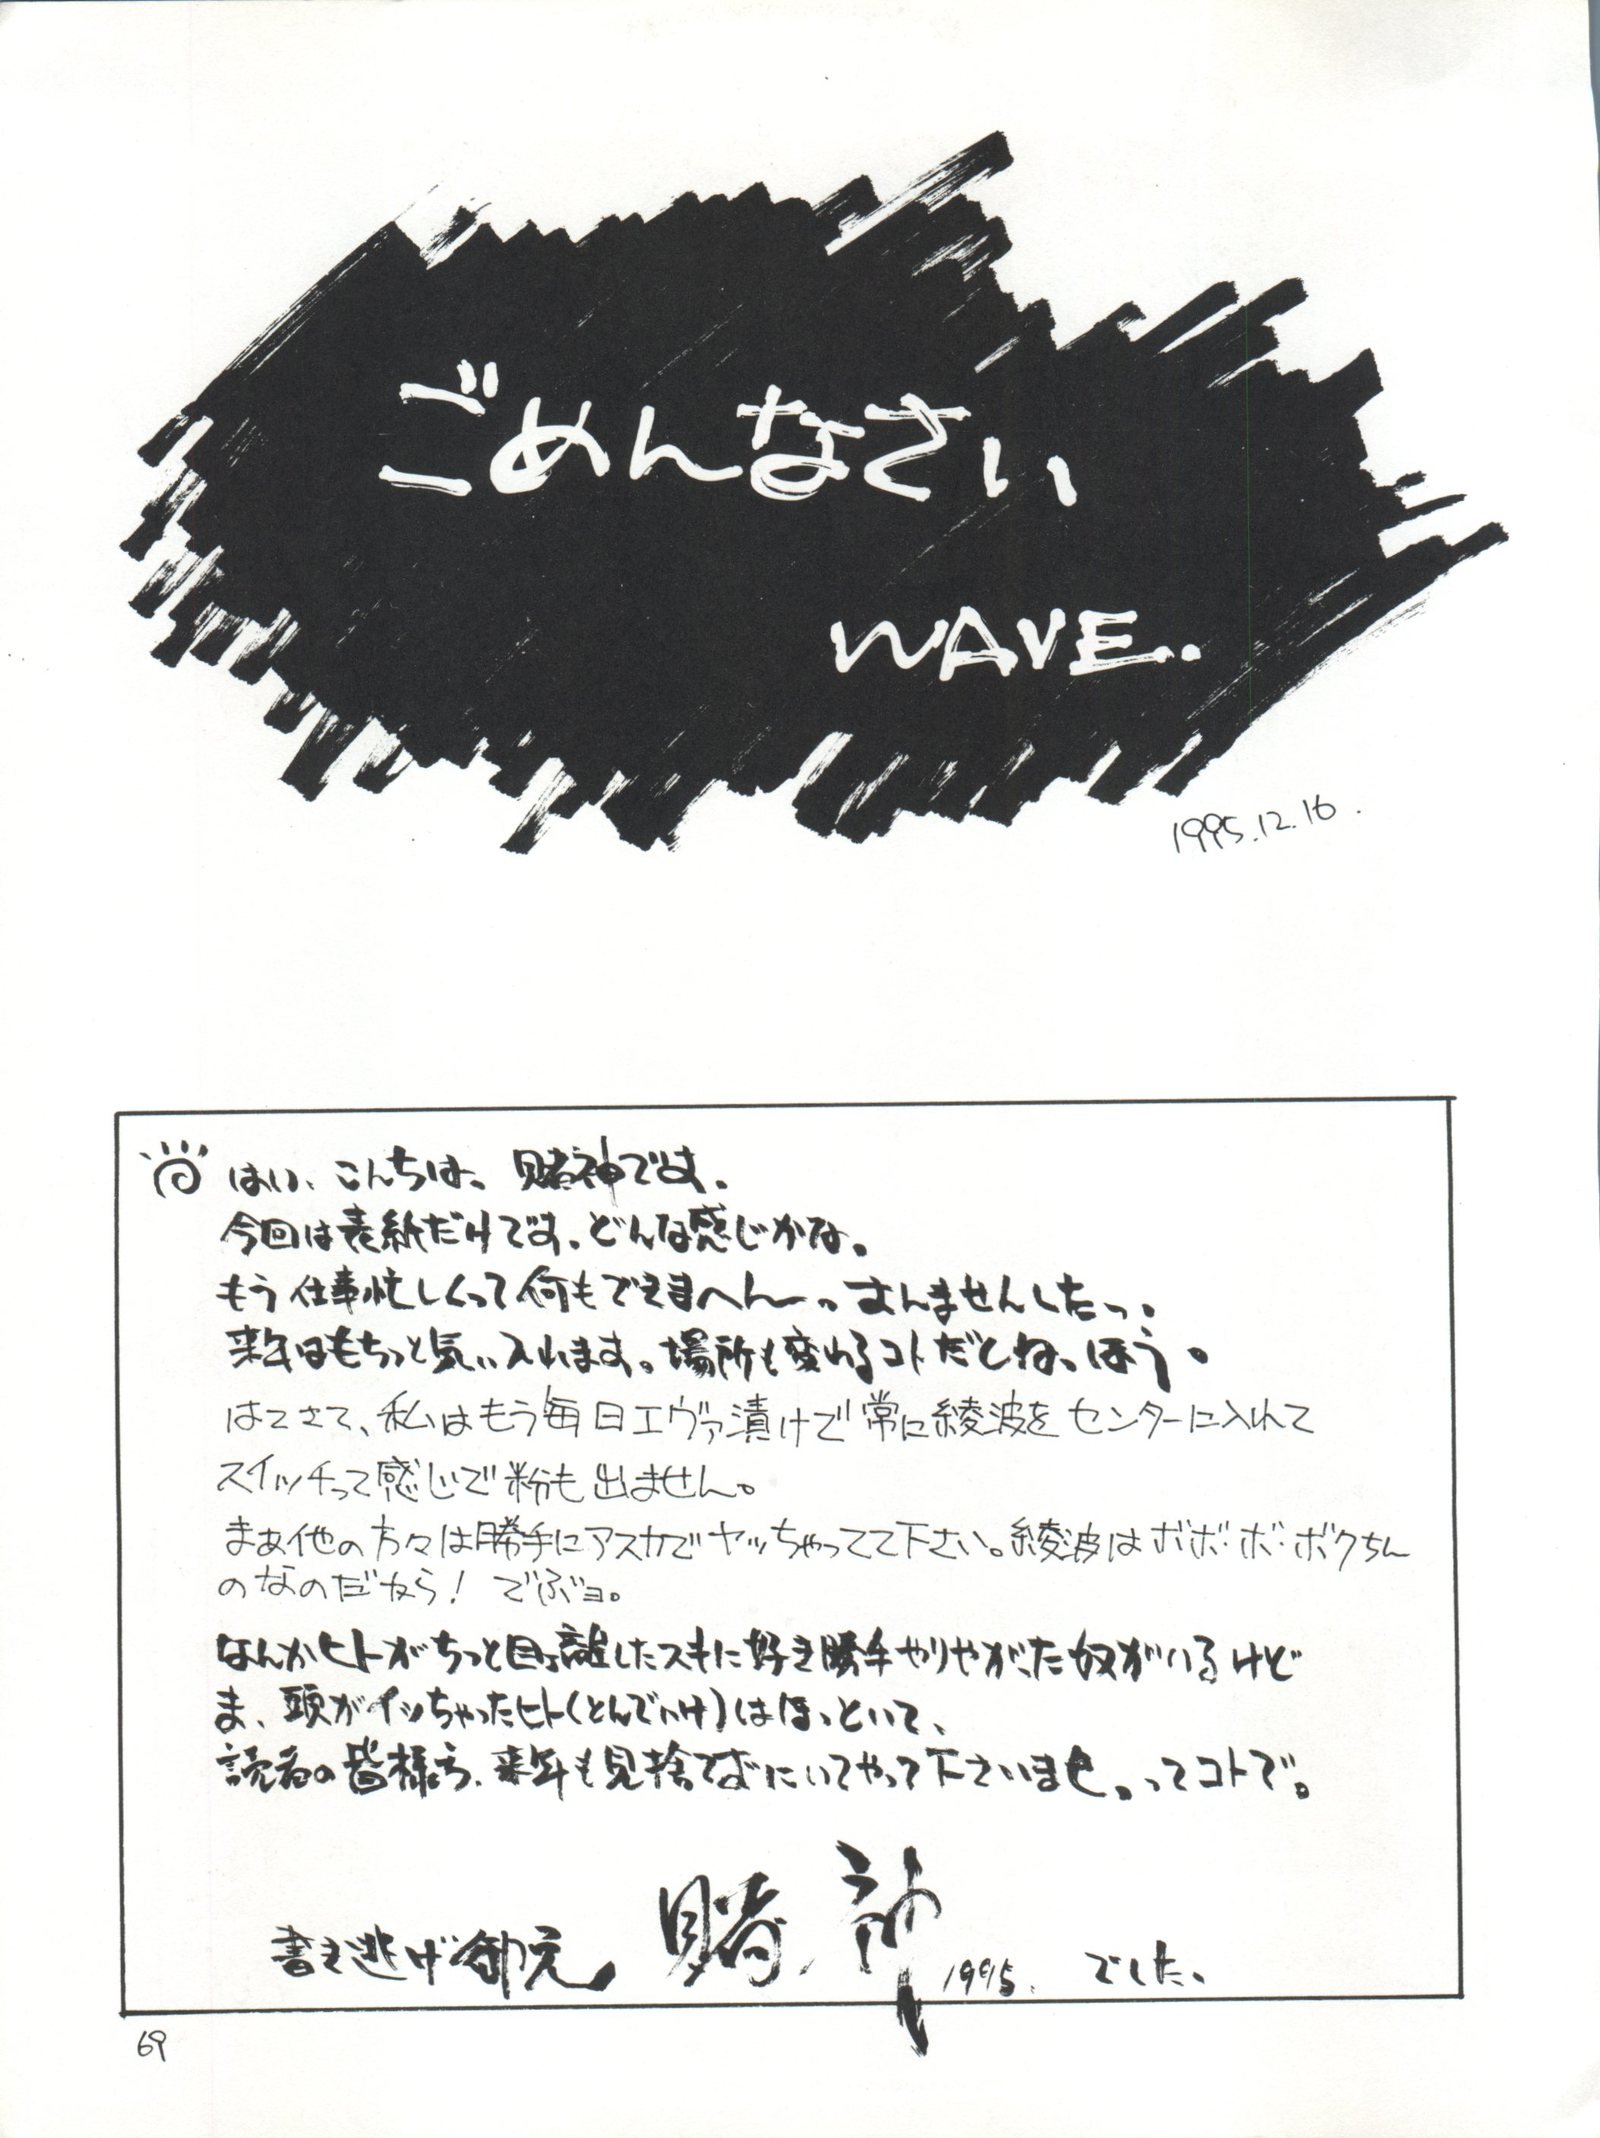 ごめんなさい
WAVE.
1995.12.16.
はい、こんちは、賭神です。
今回は表紙だけです。どんな感じかな。
もう仕事忙しくって何もできまへんー。すんませんしたっ。
来年はもちっと気ぃ入れます。場所も変わるコトだしねっ。ほう。
はてさて、私はもう毎日エヴァ漬けで常に綾波をセンターに入れて
スイッチって感じで粉も出ません。
まぁ他の方々は勝手にアスカでヤッちゃってて下さい。綾波はボボ・ボ・ボクちん
のなのだから! でぶョ。
なんかヒトがちっと目ぇ離したスキに好き勝手やりやがった奴がいるけど
ま、頭がイッちゃったヒト(とんでいけ)はほっといて、
読者の皆様方、来年も見捨てずにいてやって下さいませ。ってコトで。
書き逃げ帥元 賭神 1995. でした。
69